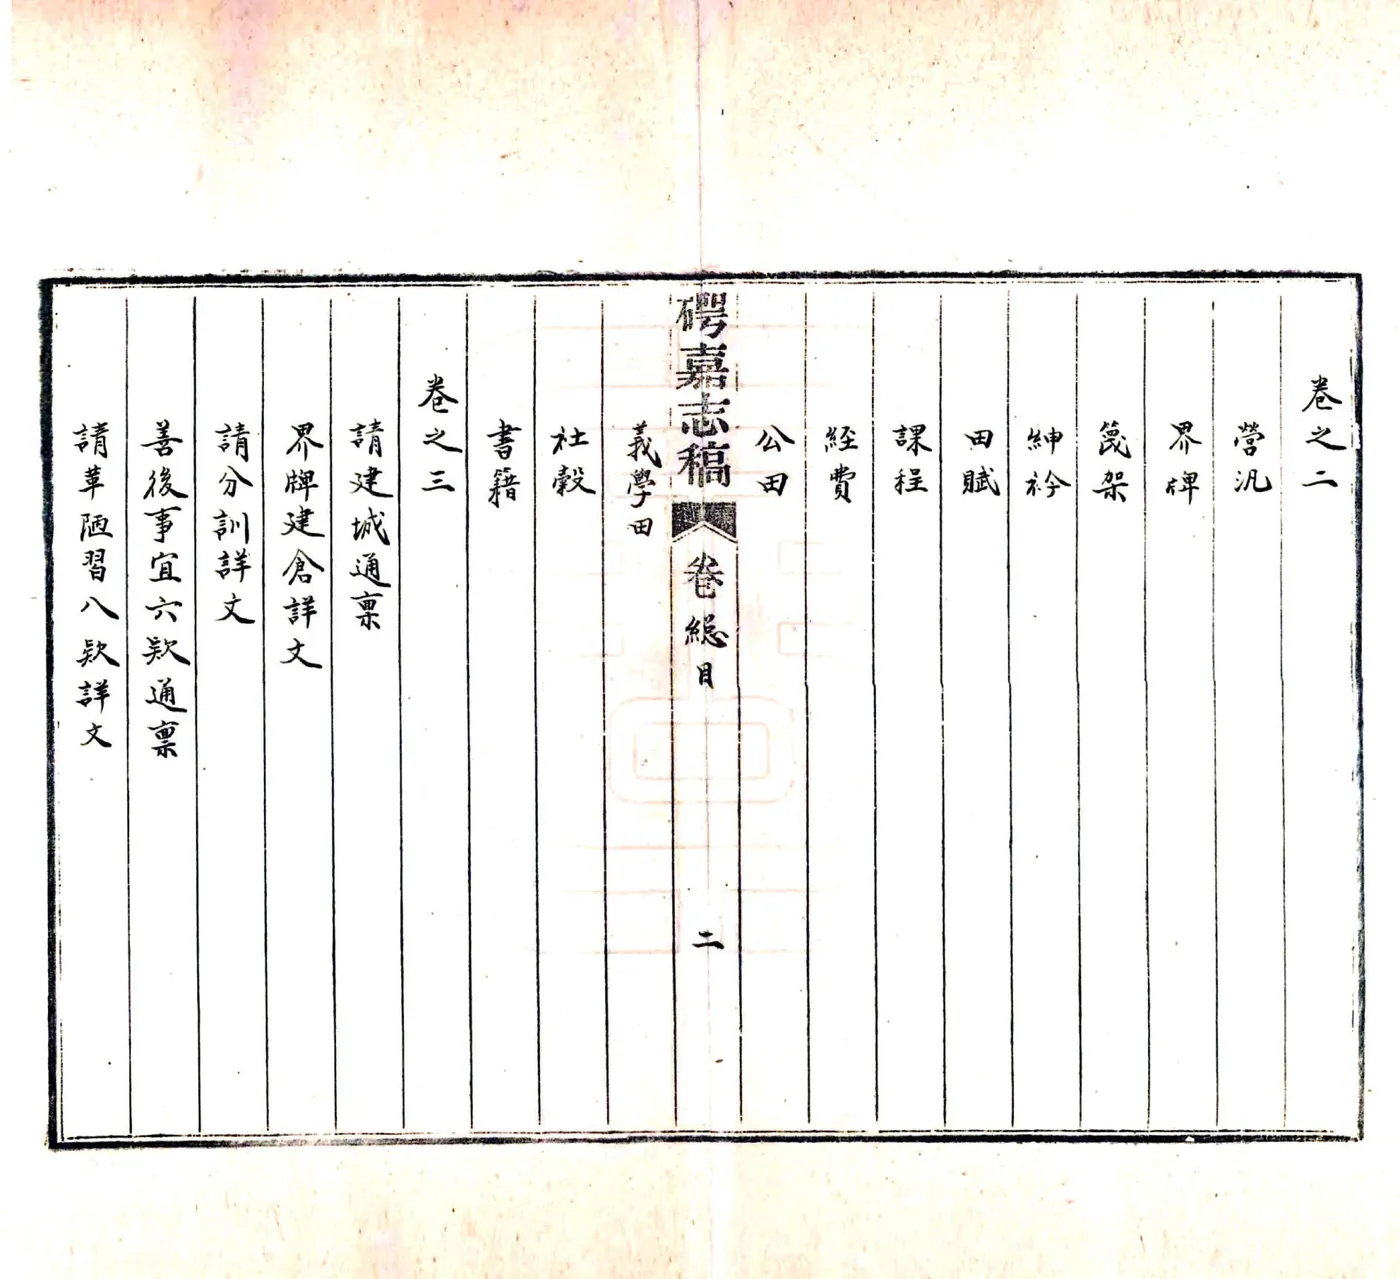 卷之二
營汛
界牌
篾架
紳衿
田賦
課程
經費
公田
碍嘉志稿
卷總目
二
義學田
社穀
書籍
卷之三
請建城通稟
界牌建倉詳文
請分訓詳文
善後事宜六欵通稟
請革陋習八欵詳文